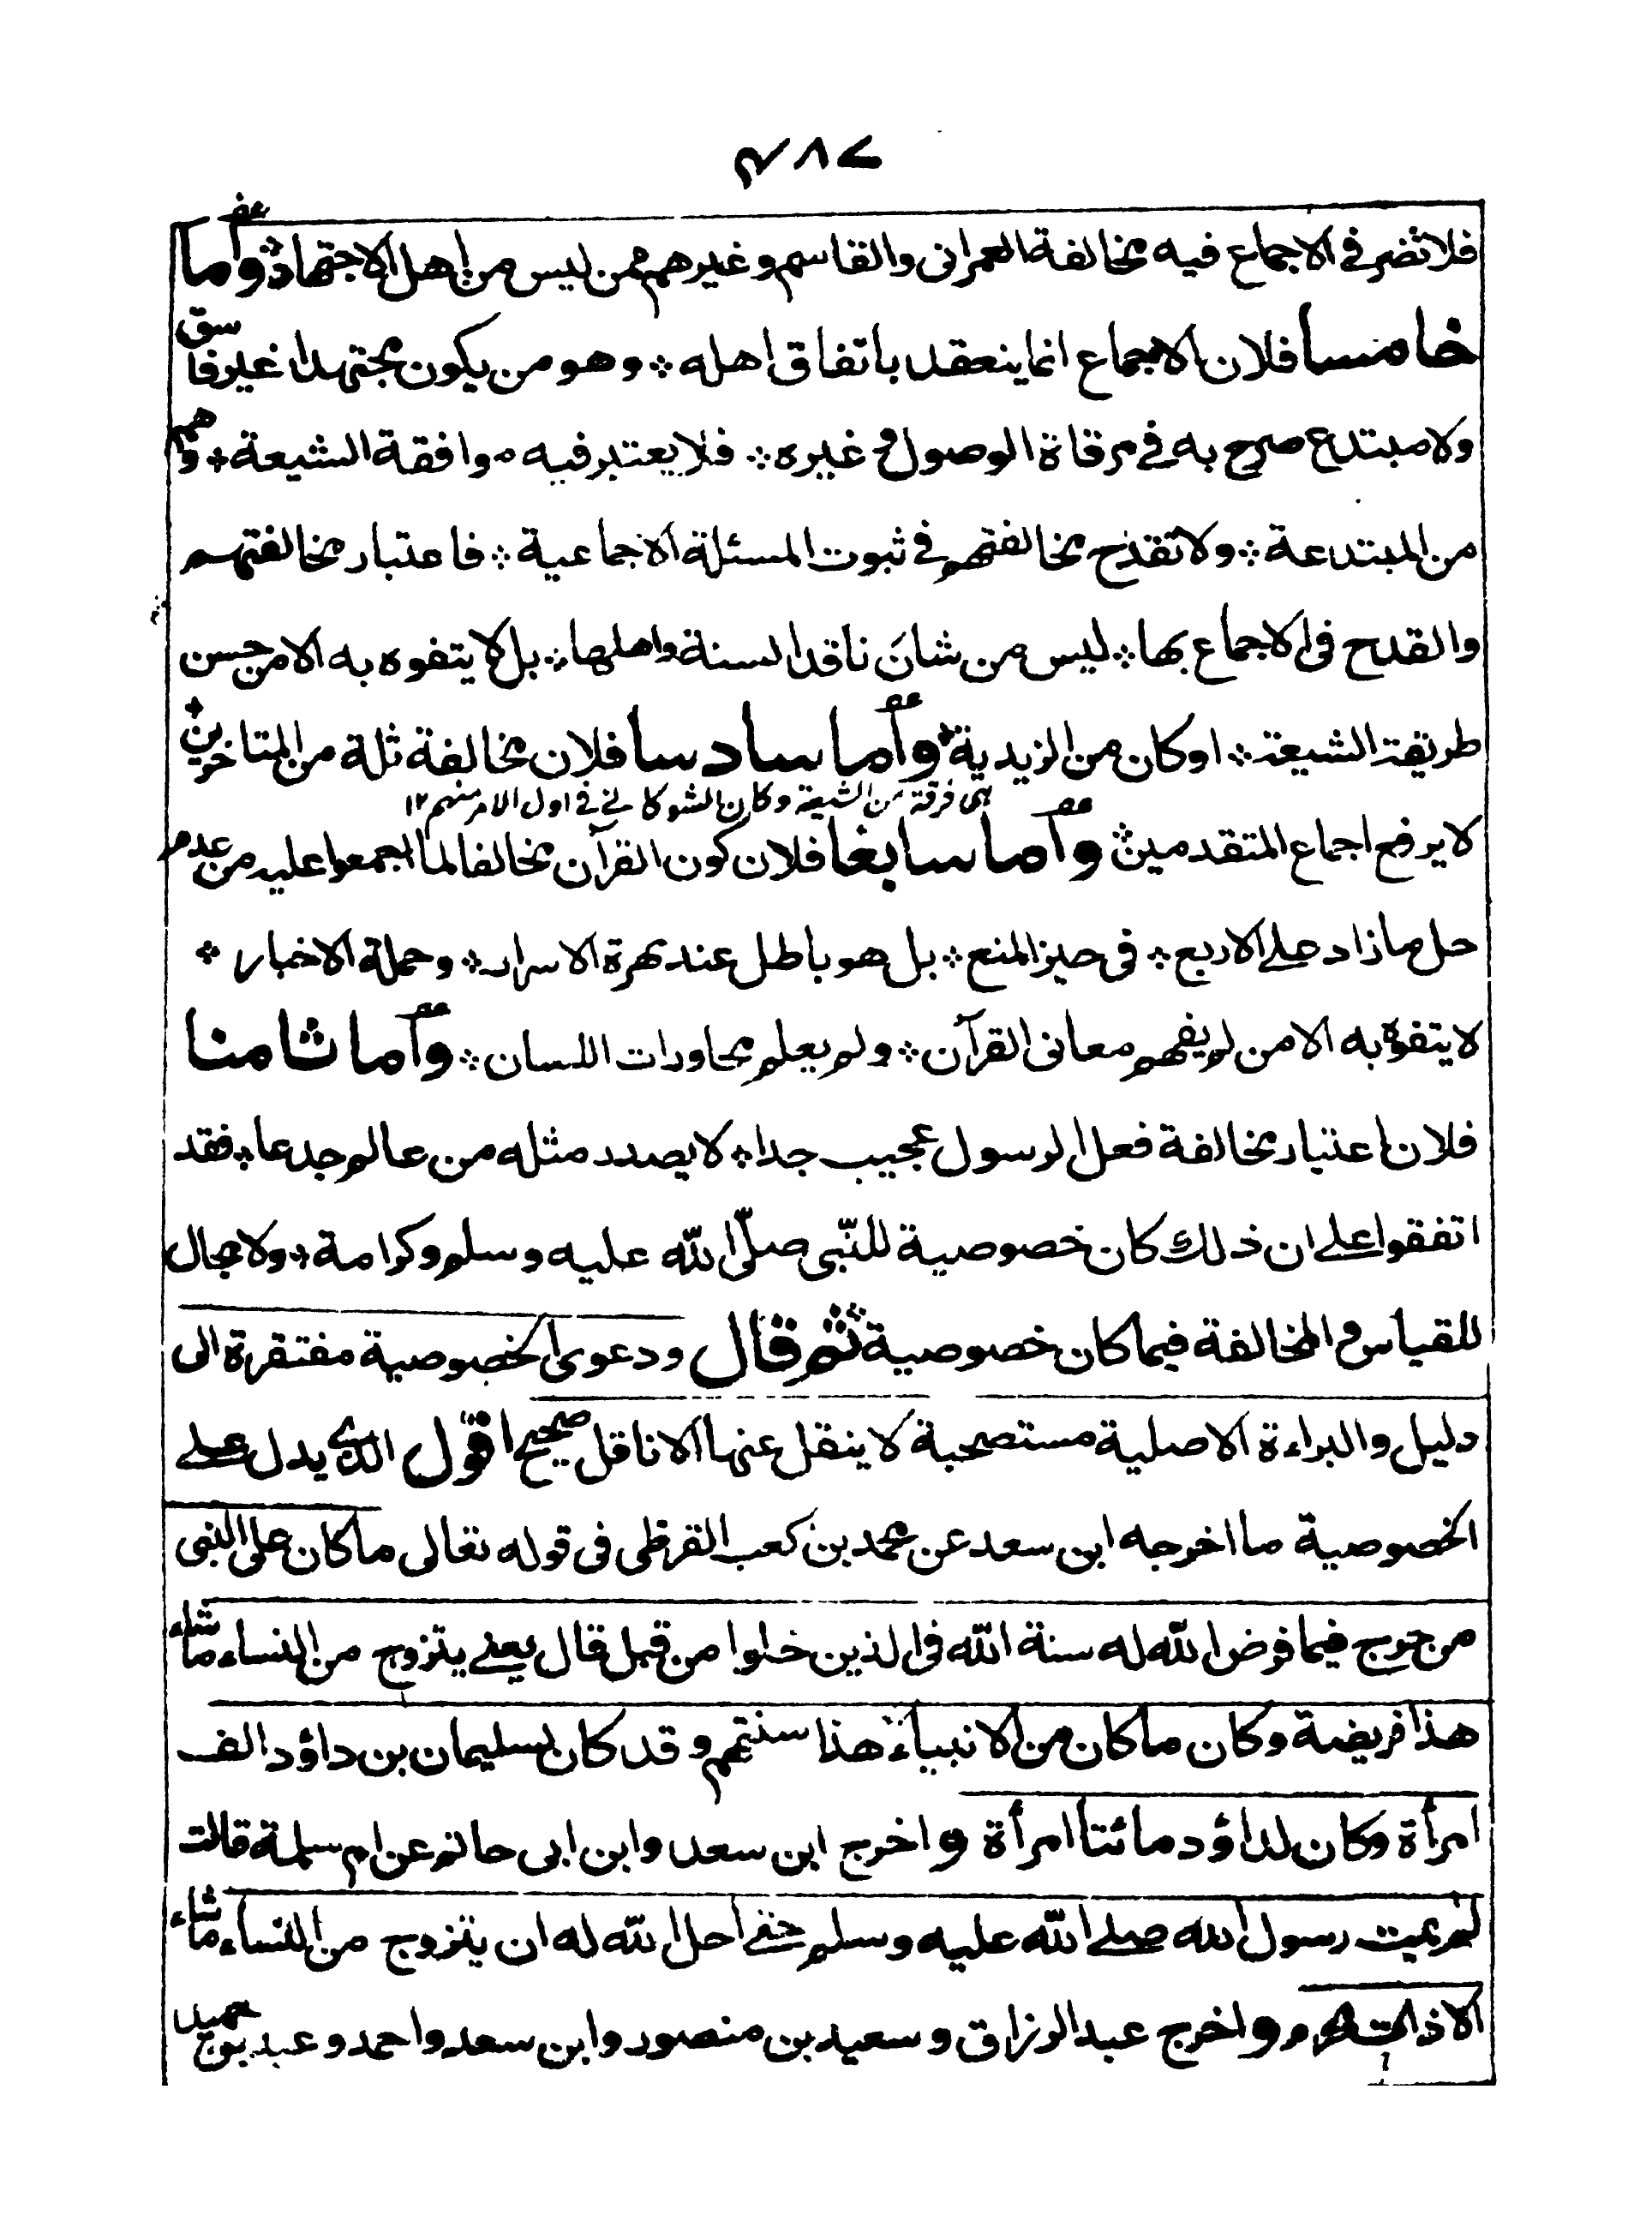 ٤٨٧
فلا تضر فى الاجماع فيه مخالفة العمرانى والقاسم وغيرهم ممن ليس من اهل الاجتهاد ؞ واما
خامسا فلان الاجماع انما ينعقد باتفاق اهله ؞ وهو من يكون مجتهدا غير فاسق
ولا مبتدع صرح به فى مرقاة الوصول وغيره ؞ فلا يعتبر فيه موافقة الشيعة ؞ وهم
من المبتدعة ؞ ولا تقدح مخالفتهم فى ثبوت المسئلة الاجماعية ؞ فاعتبار مخالفتهم
والقدح فى الاجماع بها ؞ ليس من شان ناقد السنة واهلها ؞ بل لا يتفوه به الا من حسن
طريقة الشيعة ؞ او كان من الزيدية ؞ واما سادسا فلان مخالفة ثلة من المتاخرين ؞
هى فرقة من الشيعة وكان الشوكانى فى اول الامر منهم ١٢
لا يرفع اجماع المتقدمين ؞ واما سابعا فلان كون القرآن مخالفا لما اجمعوا عليه من عدم
حل ما زاد على الاربع ؞ فى حيز المنع ؞ بل هو باطل عند مهرة الاسرار ؞ وحملة الاخبار ؞
لا يتفوه به الا من لم يفهم معانى القرآن ؞ ولم يعلم محاورات اللسان ؞ واما ثامنا
فلان اعتبار مخالفة فعل الرسول عجيب جدا ؞ لا يصدر مثله من عالم جدعا ؞ فقد
اتفقوا على ان ذلك كان خصوصية للنبى صلى الله عليه وسلم وكرامة ؞ ولا مجال
للقياس والمخالفة فيما كان خصوصية ؞ ثم قال ودعوى الخصوصية مفتقرة الى
دليل والبراءة الاصلية مستصحبة لا ينقل عنها الا ناقل صحيح اقول الذى يدل على
الخصوصية ما اخرجه ابن سعد عن محمد بن كعب القرظى فى قوله تعالى ما كان على النبى
من حرج فيما فرض الله له سنة الله فى الذين خلوا من قبل قال يعنى يتزوج من النساء ما شاء
هذا فريضة وكان ما كان من الانبياء هذا سنتهم وقد كان لسليمان بن داؤد الف
امرأة وكان لداؤد مائتا امرأة واخرج ابن سعد وابن ابى حاتم عن ام سلمة قالت
لم يمت رسول الله صلى الله عليه وسلم حتى احل الله له ان يتزوج من النساء ما شاء
الا ذات محرم واخرج عبد الرزاق وسعيد بن منصور وابن سعد واحمد وعبد بن حميد